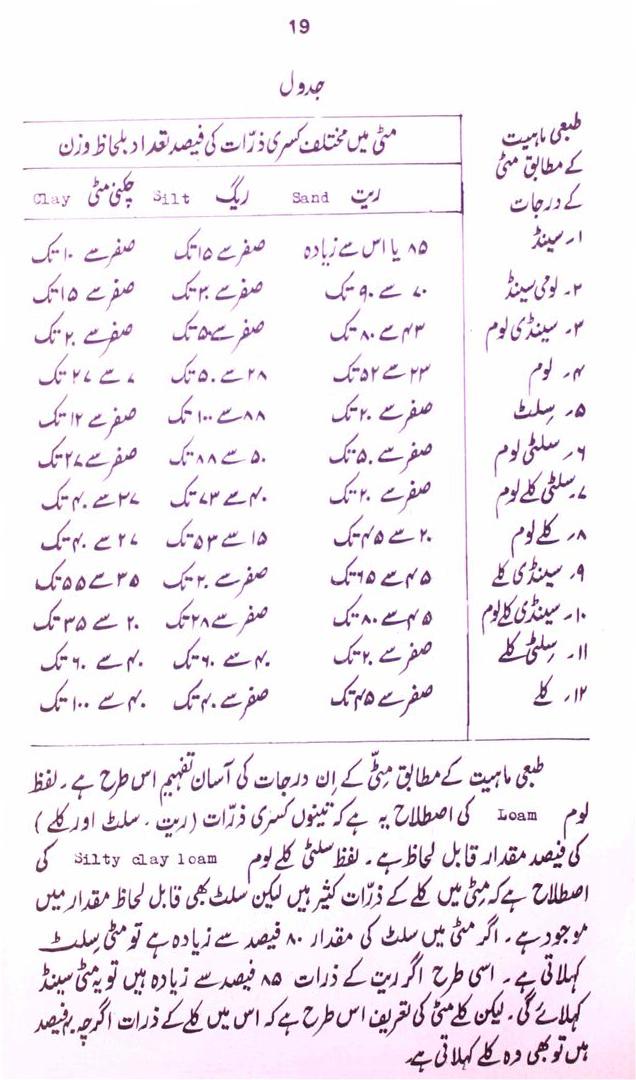 19
جدول
طبعی ماہیت کے مطابق مٹی کے درجات	مٹی میں مختلف کسری ذرّات کی فیصد تعداد بلحاظ وزن
ریت Sand	ریگ Silt	چکنی مٹی Clay
۱۔ سینڈ	۸۵ یا اس سے زیادہ	صفر سے ۱۵ تک	صفر سے ۱۰ تک
۲۔ لومی سینڈ	۷۰ سے ۹۰ تک	صفر سے ۳۰ تک	صفر سے ۱۵ تک
۳۔ سینڈی لوم	۴۳ سے ۸۰ تک	صفر سے ۵۰ تک	صفر سے ۲۰ تک
۴۔ لوم	۲۳ سے ۵۲ تک	۲۸ سے ۵۰ تک	۷ سے ۲۷ تک
۵۔ سِلٹ	صفر سے ۲۰ تک	۸۸ سے ۱۰۰ تک	صفر سے ۱۲ تک
۶۔ سلٹی لوم	صفر سے ۵۰ تک	۵۰ سے ۸۸ تک	صفر سے ۲۷ تک
۷۔ سلٹی کلے لوم	صفر سے ۲۰ تک	۴۰ سے ۷۳ تک	۲۷ سے ۴۰ تک
۸۔ کلے لوم	۲۰ سے ۴۵ تک	۱۵ سے ۵۳ تک	۲۷ سے ۴۰ تک
۹۔ سینڈی کلے	۴۵ سے ۶۵ تک	صفر سے ۲۰ تک	۳۵ سے ۵۵ تک
۱۰۔ سینڈی کلے لوم	۴۵ سے ۸۰ تک	صفر سے ۲۸ تک	۲۰ سے ۳۵ تک
۱۱۔ سِلٹی کلے	صفر سے ۲۰ تک	۴۰ سے ۶۰ تک	۴۰ سے ۶۰ تک
۱۲۔ کلے	صفر سے ۴۵ تک	صفر سے ۴۰ تک	۴۰ سے ۱۰۰ تک
طبعی ماہیت کے مطابق مِٹّی کے اِن درجات کی آسان تفہیم اس طرح ہے۔ لفظ
لوم Loam کی اصطلاح یہ ہے کہ تینوں کسری ذرّات (ریت، سلٹ اور کلے)
کی فیصد مقدار قابل لحاظ ہے۔ لفظ سلٹی کلے لوم Silty clay loam کی
اصطلاح ہے کہ مِٹی میں کلے کے ذرّات کثیر ہیں لیکن سلٹ بھی قابل لحاظ مقدار میں
موجود ہے۔ اگر مٹی میں سلٹ کی مقدار ۸۰ فیصد سے زیادہ ہے تو مٹی سِلٹ
کہلاتی ہے۔ اسی طرح اگر ریت کے ذرات ۸۵ فیصد سے زیادہ ہیں تو یہ مٹی سینڈ
کہلائے گی۔ لیکن کلے مٹی کی تعریف اس طرح ہے کہ اس میں کلے کے ذرات اگرچہ ۴۰ فیصد
ہیں تو بھی وہ کلے کہلاتی ہے۔